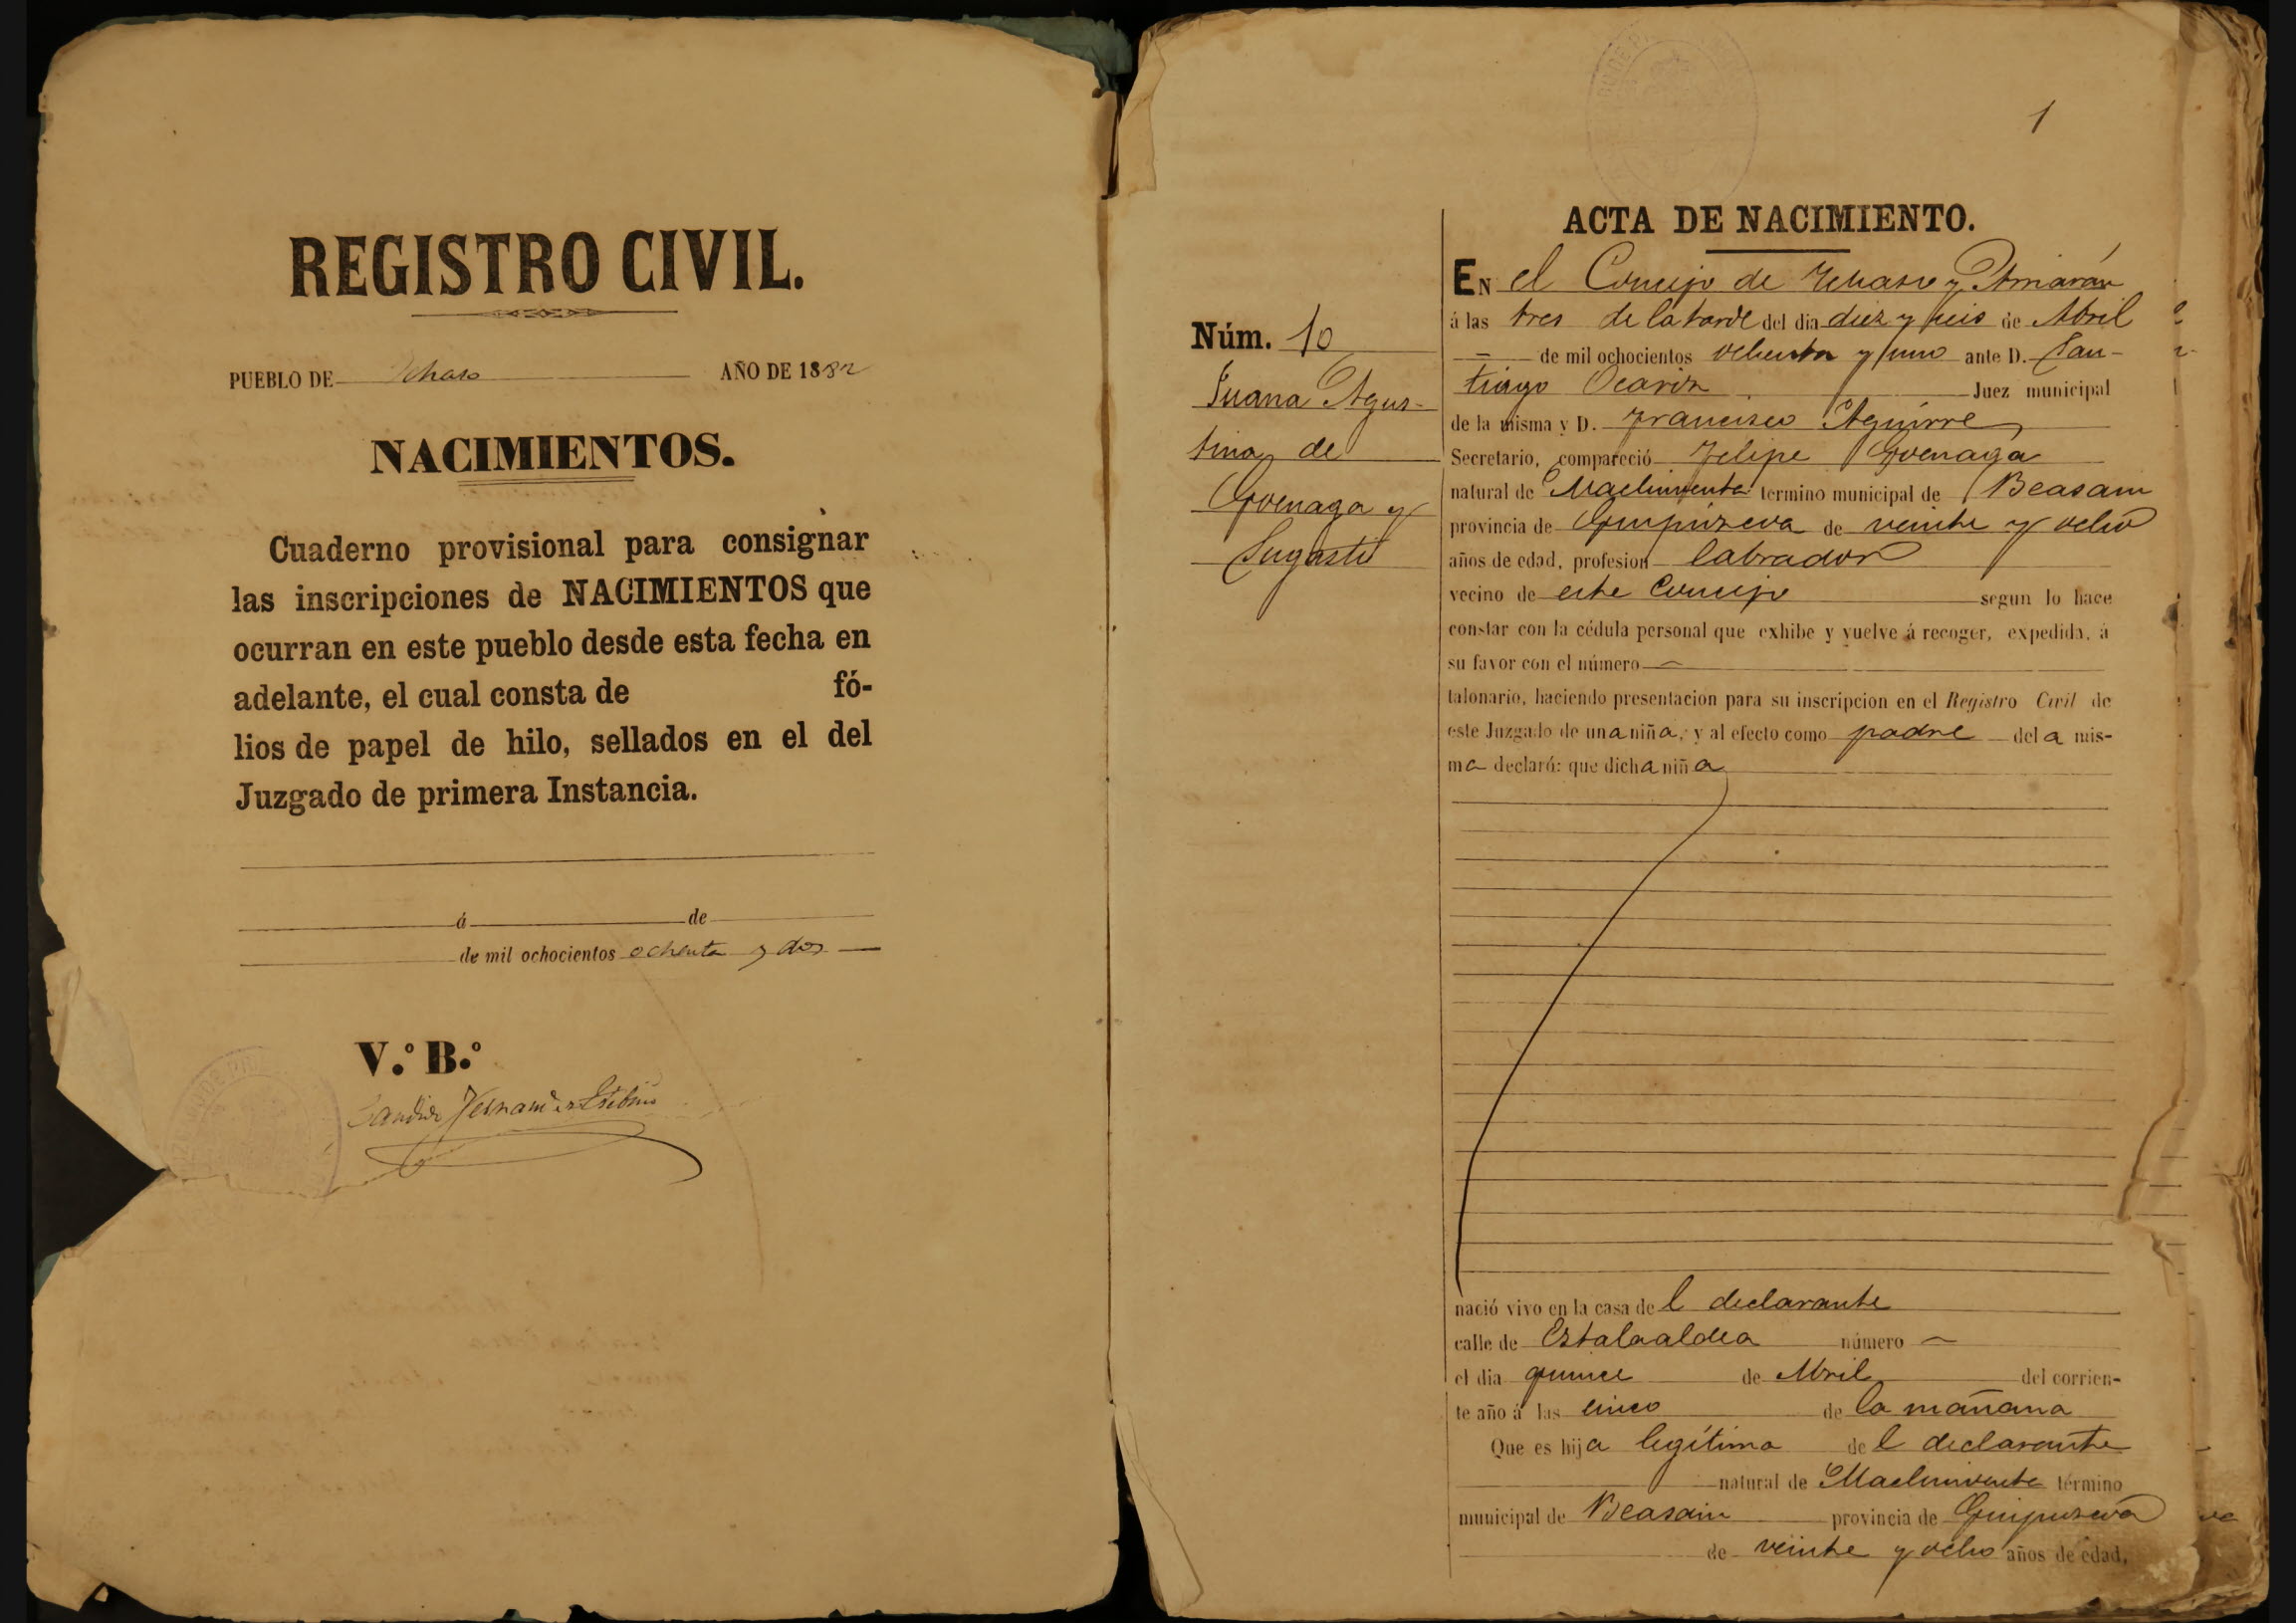 REGISTRO CIVIL.
PUEBLO DE Ichaso AÑO DE 1882
NACIMIENTOS.
Cuaderno provisional para consignar
las inscripciones de NACIMIENTOS que
ocurran en este pueblo desde esta fecha en
adelante, el cual consta de fó-
lios de papel de hilo, sellados en el del
Juzgado de primera Instancia.
á de
de mil ochocientos ochenta y dos
V.º B.º
1
Núm. 10
Juana Agus-
tina de
Goenaga y
ACTA DE NACIMIENTO.
EN el Concejo de Ychaso y Arriarán
á las tres de la tarde del dia diez y seis de Abril
de mil ochocientos ochenta y uno ante D. San-
tiago Ocariz Juez municipal
de la misma y D. Francisco Aguirre
Secretario, compareció Felipe Goenaga
natural de termino municipal de Beasain
provincia de Guipúzcoa de veinte y ocho
años de edad, profesion labrador
vecino de este Concejo segun lo hace
constar con la cédula personal que exhibe y vuelve á recoger, expedida, á
su favor con el número
talonario, haciendo presentacion para su inscripcion en el Registro Civil de
este Juzgado de una niña, y al efecto como padre de la mis-
ma declaró: que dicha niña
nació vivo en la casa del declarante
calle de Estalaaldea número
el dia quince de Abril del corrien-
te año á las cinco de la mañana
Que es hija legítima del declarante
natural de término
municipal de Beasain provincia de Guipuzcoa
de veinte y ocho años de edad,